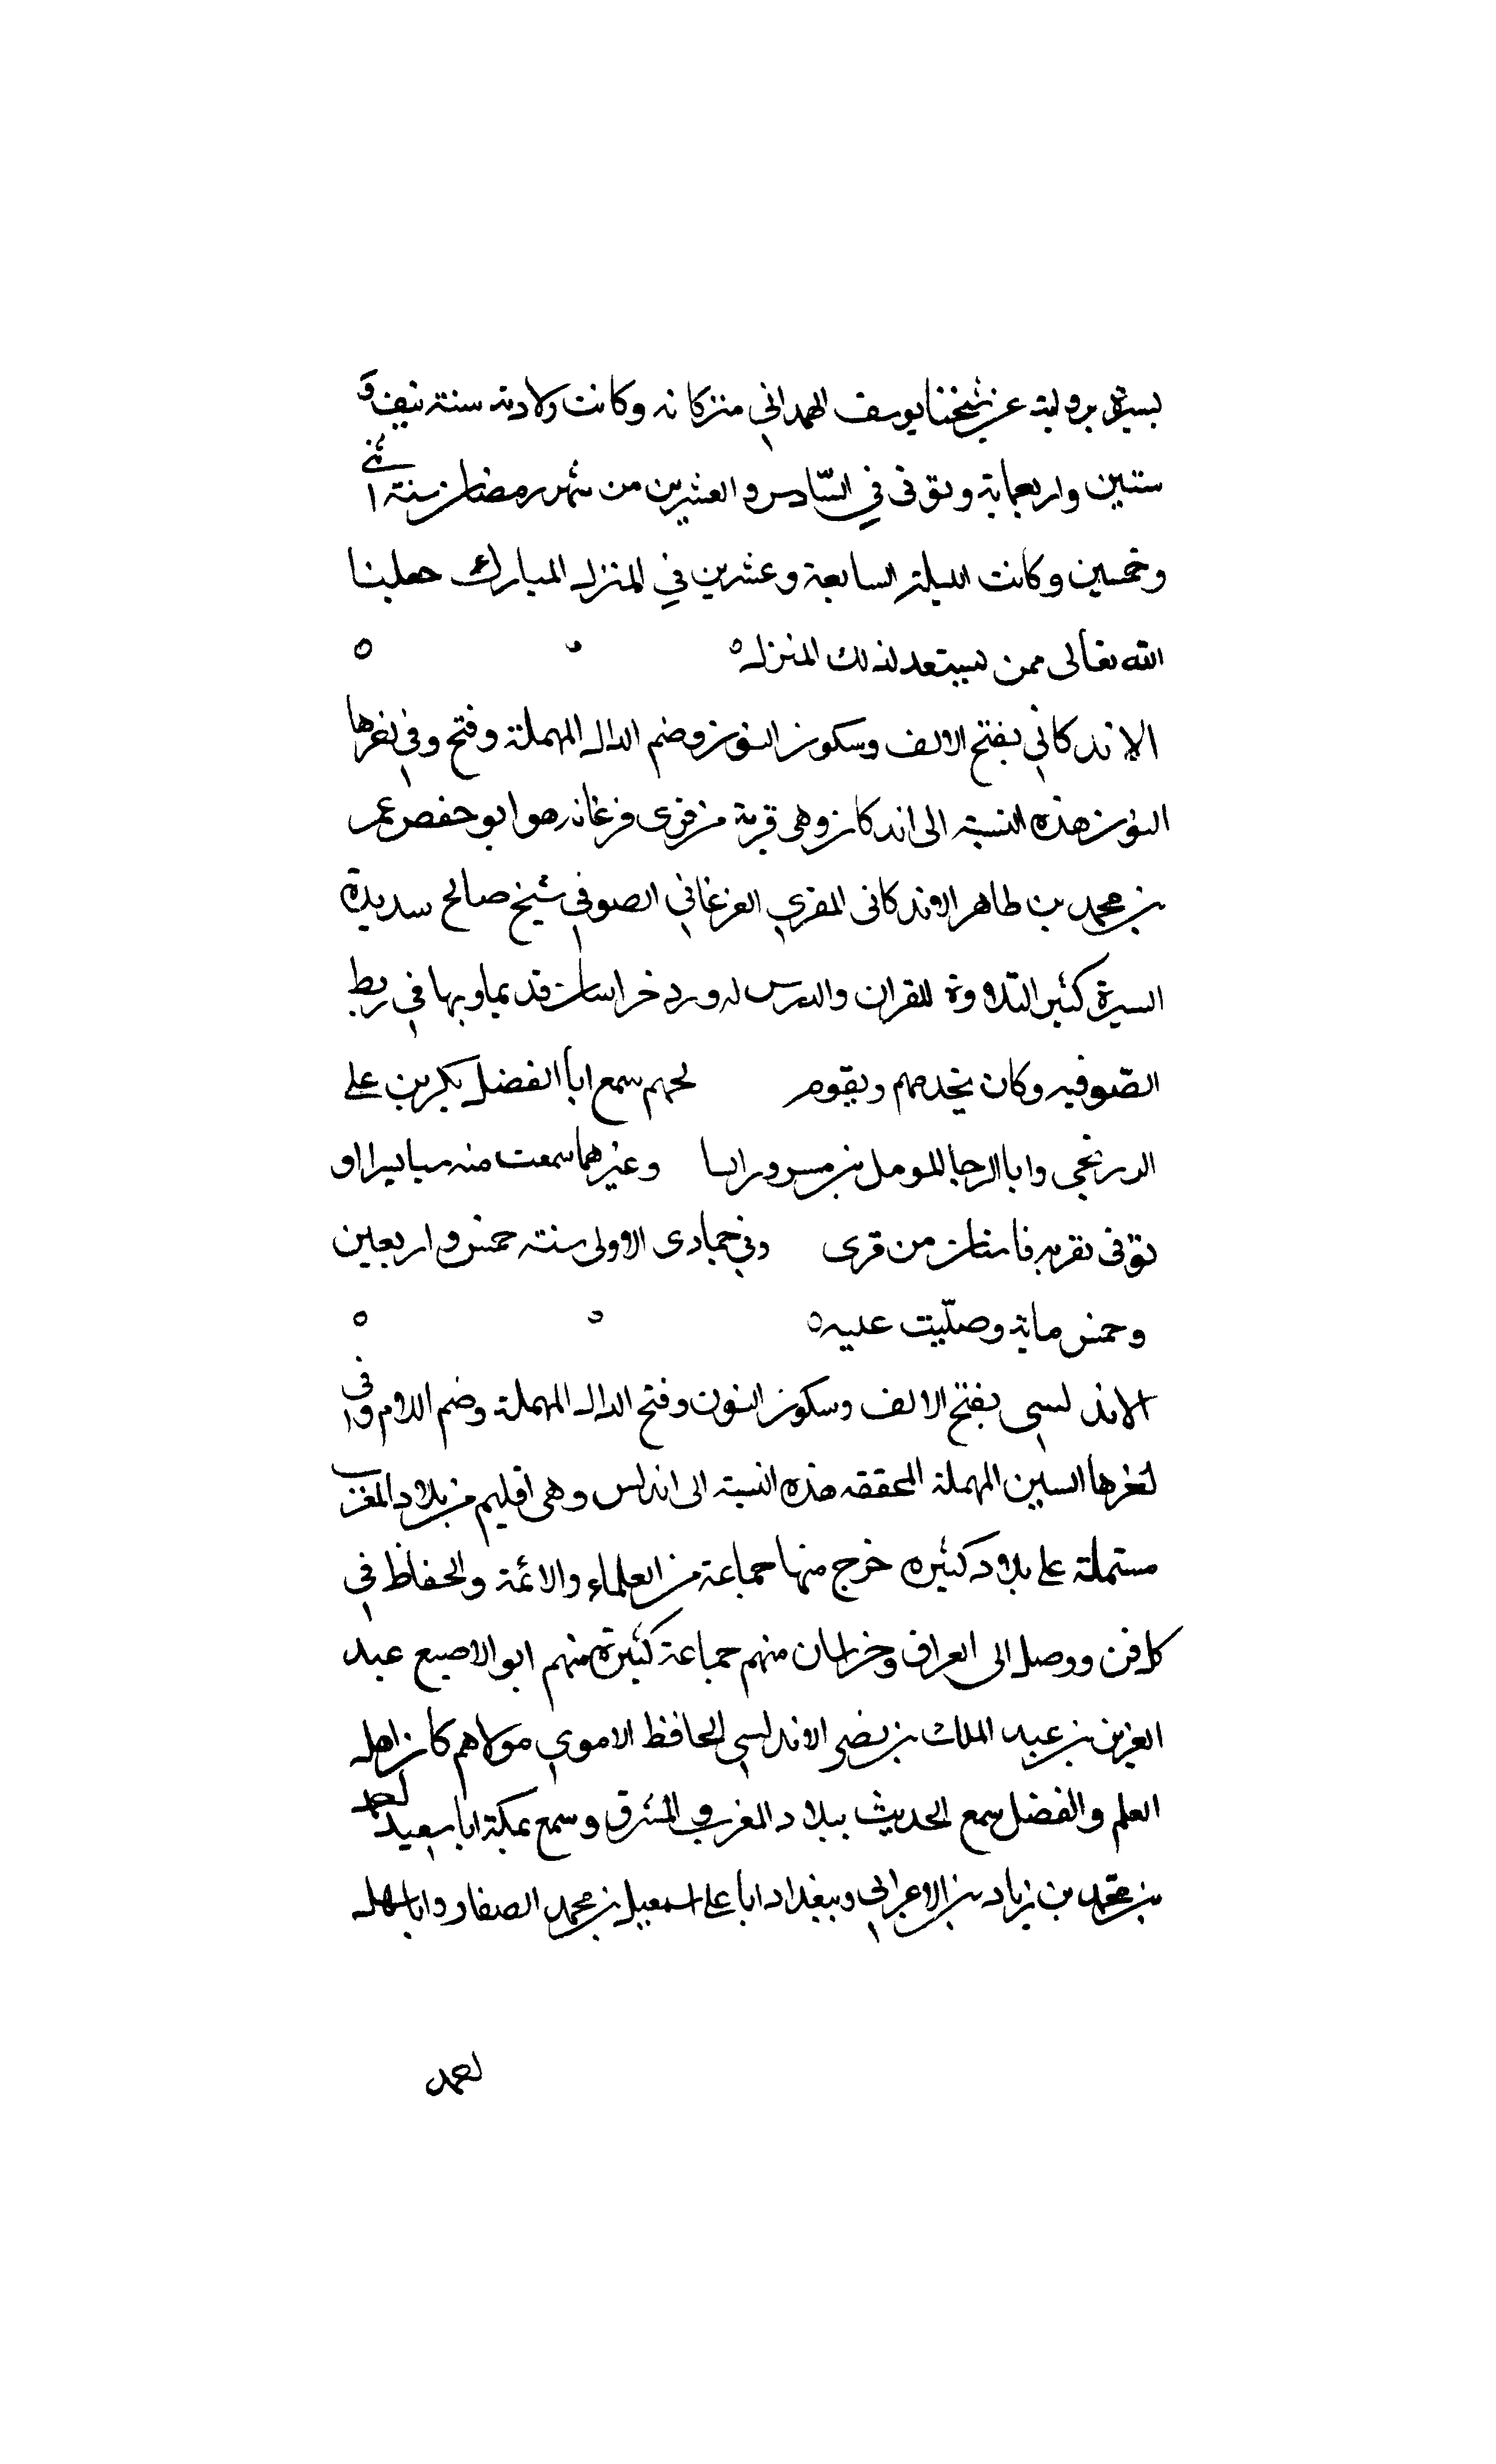 يسيرة بروايته عن شيخنا يوسف الهمداني منزكانه وكانت ولادته سنة نيف و
ستين واربعماية وتوفى في السّادس والعشرين من شهر رمضان سنة اثنى
وخمسين وكانت الليلة السابعة وعشرين في المنزل المبارك جعلنا
الله تعالى ممن يستعد لذلك المنزل ه ه ه
الاندكاني بفتح الالف وسكون النون وضم الدال المهملة وفتح وفي اخرها
النون هذه النسبة الى اندكان وهي قرية من قرى فرغانه هو ابو حفص عمر
بن محمد بن طاهر الاندكانى المقري الفرغاني الصوفي شيخ صالح سديدة
السيرة كثير التلاوة للقران والدرس له ورد خراسان قديما وبها في ربط
الصّوفيه وكان يخدمهم ويقوم لحهم سمع ابا الفضل بكر بن على
الدرنجى وابا الرجا المومل بن مسرور ابسا وغيرهما سمعت منه شيا يسيرا و
توفى بقرية فاشان من قرى وفي جمادى الاولى سنة خمس واربعين
وخمس ماية وصلّيت عليه ه ه ه
الاندلسي بفتح الالف وسكون النون وفتح الدال المهملة وضم اللام وفى ا
اخرها السين المهملة المحققه هذه النسبة الى اندلس وهى اقليم من بلاد المغرب
مشتملة على بلاد كثيره خرج منها جماعة من العلماء والائمة والحفاظ في
كل فن ووصل الى العراق وخراسان منهم جماعة كثيرة منهم ابو الاصبع عبد
العزيز بن عبد الملك بن نصر الاندلسي الحافظ الاموي مولاهم كان اهل
العلم والفضل سمع الحديث ببلاد المغرب والمشرق وسمع بمكة ابا سعيد احمد
بن محمد بن زياد بن الاعرابي وببغداد ابا على اسمعيل بن محمد الصفار وابا سهل
احمد